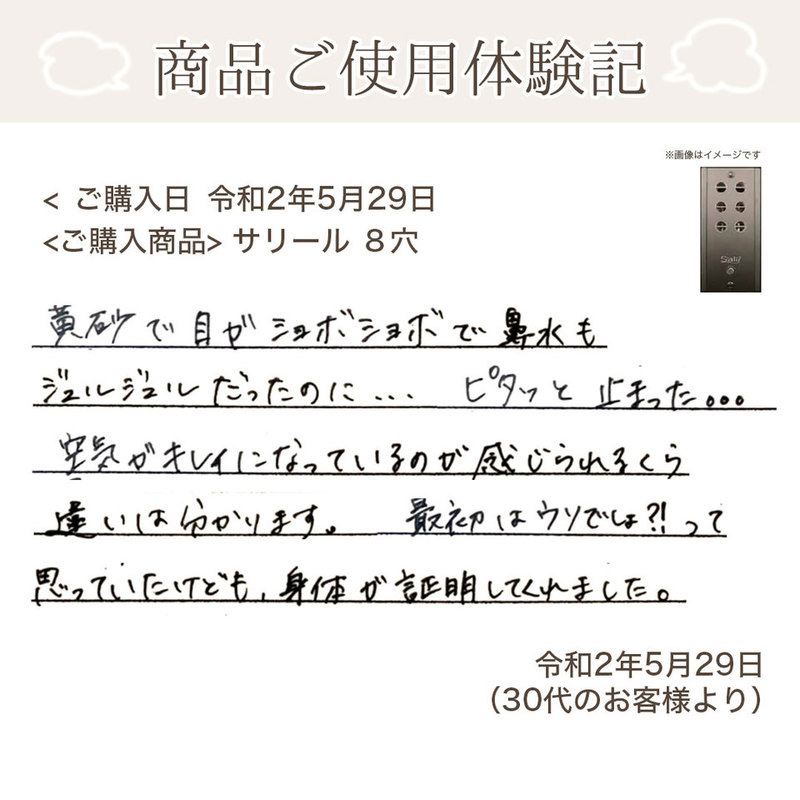 商品ご使用体験記
※画像はイメージです
< ご購入日 令和2年5月29日
<ご購入商品> サリール 8穴
黄砂で目がショボショボで鼻水も
ジュルジュルだったのに... ピタッと止まった。。。
空気がキレイになっているのが感じられるくら
違いは分かります。 最初はウソでしょ?!って
思っていたけども、身体が証明してくれました。
令和2年5月29日
(30代のお客様より)